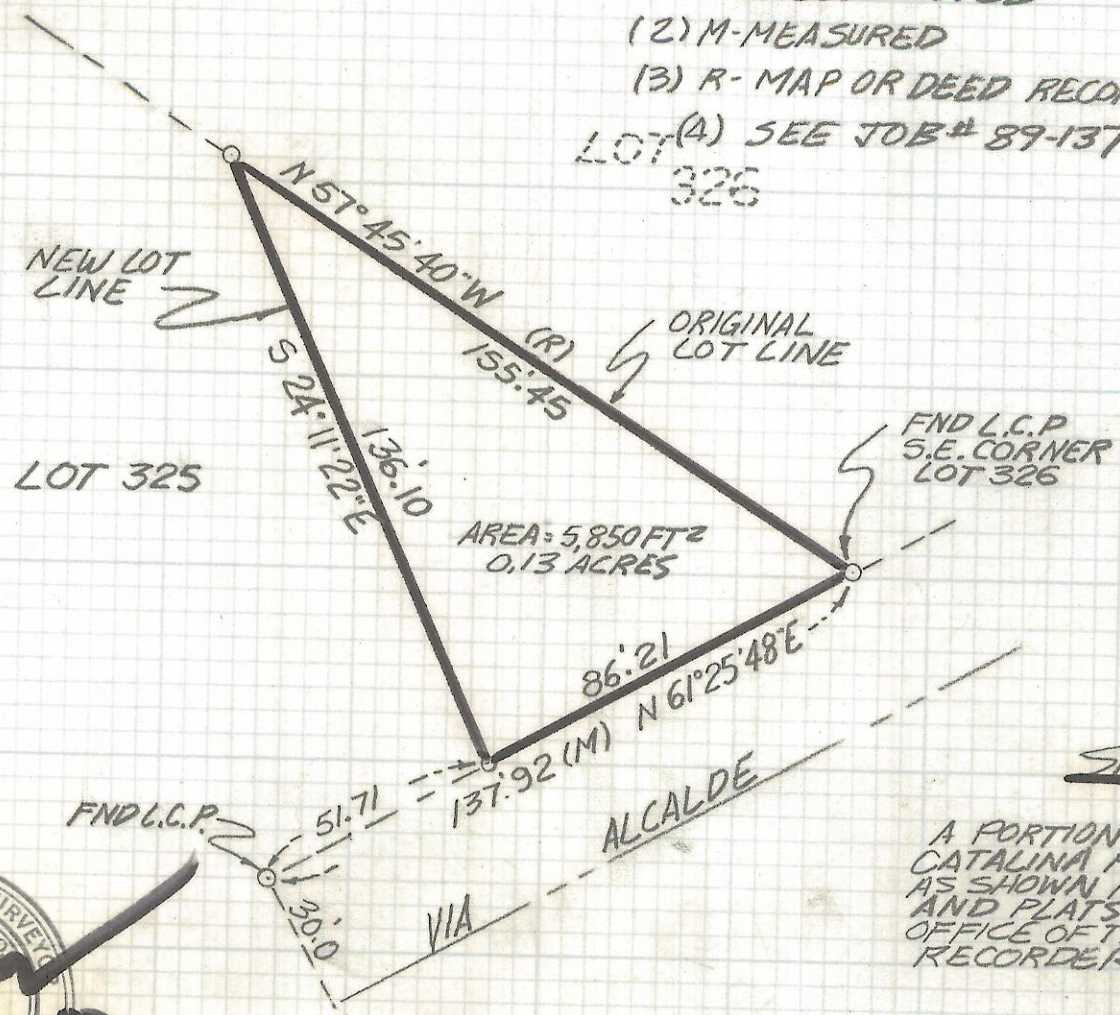 (2) M-MEASURED
(3) R-MAP OR DEED RECO
(4) SEE JOB# 89-137
LOT
326
N 57° 45' 40" W
(R)
155.'45
NEW LOT
LINE
ORIGINAL
LOT LINE
S 24° 11' 22" E
136.'10
FND L.C.P
S.E. CORNER
LOT 326
LOT 325
AREA = 5,850 FT²
0.13 ACRES
86.'21
N 61° 25' 48" E
137.'92 (M)
51.71
FND L.C.P.
30.'0
VIA ALCALDE
A PORTION
CATALINA
AS SHOWN
AND PLATS
OFFICE OF T
RECORDER